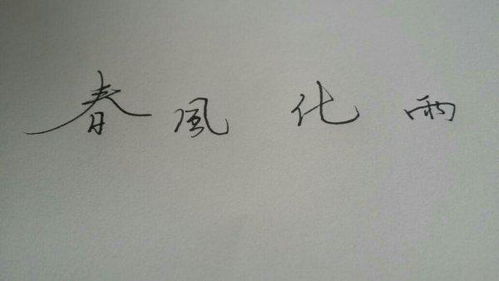 春風化雨